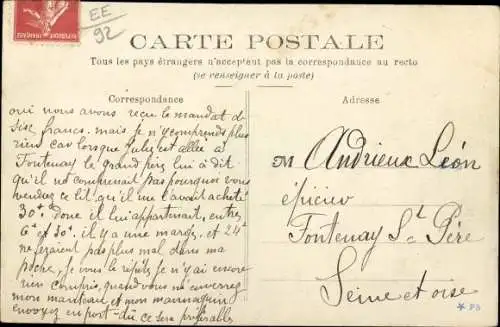 REPUBLIQUE FRANÇAISE
EE
92
CARTE POSTALE
Tous les pays étrangers n'acceptent pas la correspondance au recto
(se renseigner à la poste)
Correspondance
Adresse
oui nous avons recu le mandat de
sise francs. mais je n'y comprends plus
rien car lorsque Jules est allée à
Fontenay le grand père lui a dit
qu'il ne comprenait pas pourquoi vous
vendez ce lit qu'il me l'avait acheté
30f. Donc il lui appartenait, entre
6f et 30f. il y a une marge, et 24f
ne feraient pas plus mal dans ma
poche. Je vous le répète je n'ai encore
rien compris, quand vous m'enverrez
mon manteau et mon mannequin
envoyez en port-dû ce sera préférable
M Andrieux Léon
épicier
Fontenay St Père
Seine et oise
* PB